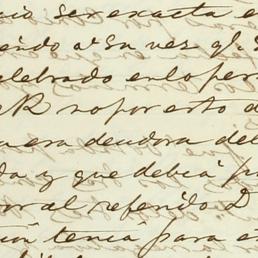 ser exacta e
endo a su vez q.
celebrado en lo per
R no por esto d
era deudora del
da y que debia p
or al referido D
tenia para e